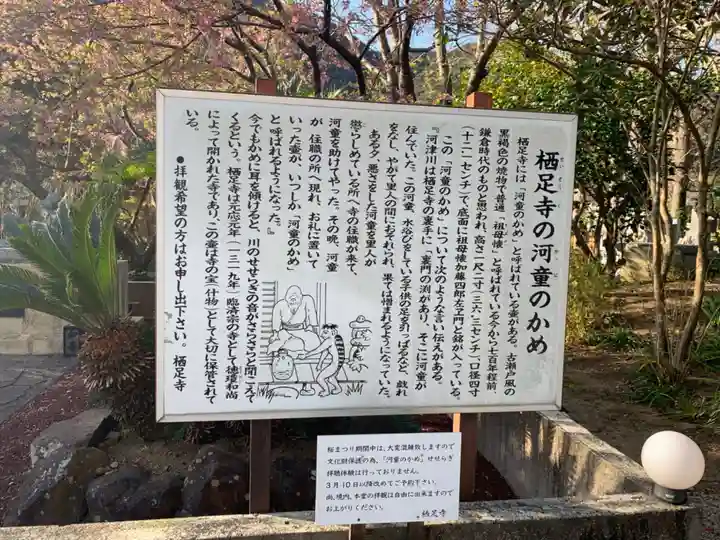 栖足寺の河童のかめ
栖足寺には「河童のかめ」と呼ばれている壺がある。古瀬戸風の
黒褐色の焼物で普通「祖母懐」と呼ばれている今から七百年程前、
鎌倉時代のものと思われ、高さ一尺二寸（三六・三センチ）、口径四寸
（十二・一センチ）で、底面に祖母懐加藤四郎左ヱ門と銘が入っている。
この「河童のかめ」について次のような言い伝えがある。
『河津川は栖足寺の裏手に、裏門の渕があり、そこに河童が
住んでいた。この河童、水浴びをしている子供の足を引っぱるなど、戯れ
をなし、やがて里人の間におそれられ、果ては憎まれるようになっていた。
ある夕、悪さをした河童を里人が
懲らしめている所へ寺の住職が来て、
河童を助けてやった。その晩、河童
が、住職の所へ現れ、お礼に置いて
いった壺が、いつしか「河童のかめ」
と呼ばれるようになった。』
今でもかめに耳を傾けると、川のせせらぎの音がさらさらと聞こえて
くるという。栖足寺は元応元年（一三一九年）臨済宗の寺として徳瓊和尚
によって開かれた寺であり、この壺は寺の宝（什物）として大切に保管されて
いる。
●拝観希望の方はお申し出下さい。 栖足寺
桜まつり期間中は、大変混雑致しますので
文化財保護の為、「河童のかめ」せせらぎ
拝聴体験は行っておりません。
3月10日以降改めてご予約下さい。
尚、境内、本堂の拝観は自由に出来ますので
お上がりください。 栖足寺